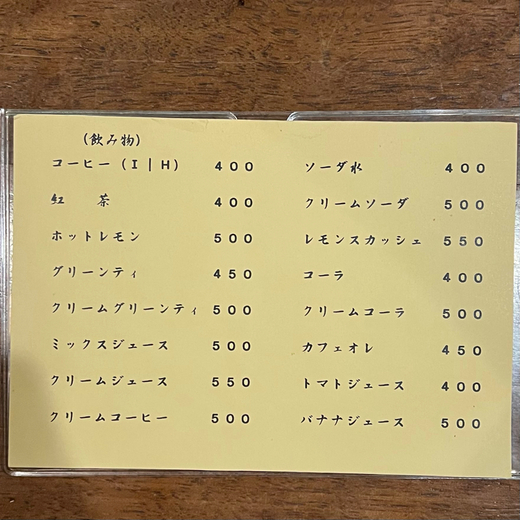 (飲み物)
コーヒー(I|H) 400
紅 茶 400
ホットレモン 500
グリーンティ 450
クリームグリーンティ 500
ミックスジュース 500
クリームジュース 550
クリームコーヒー 500
ソーダ水 400
クリームソーダ 500
レモンスカッシュ 550
コーラ 400
クリームコーラ 500
カフェオレ 450
トマトジュース 400
バナナジュース 500